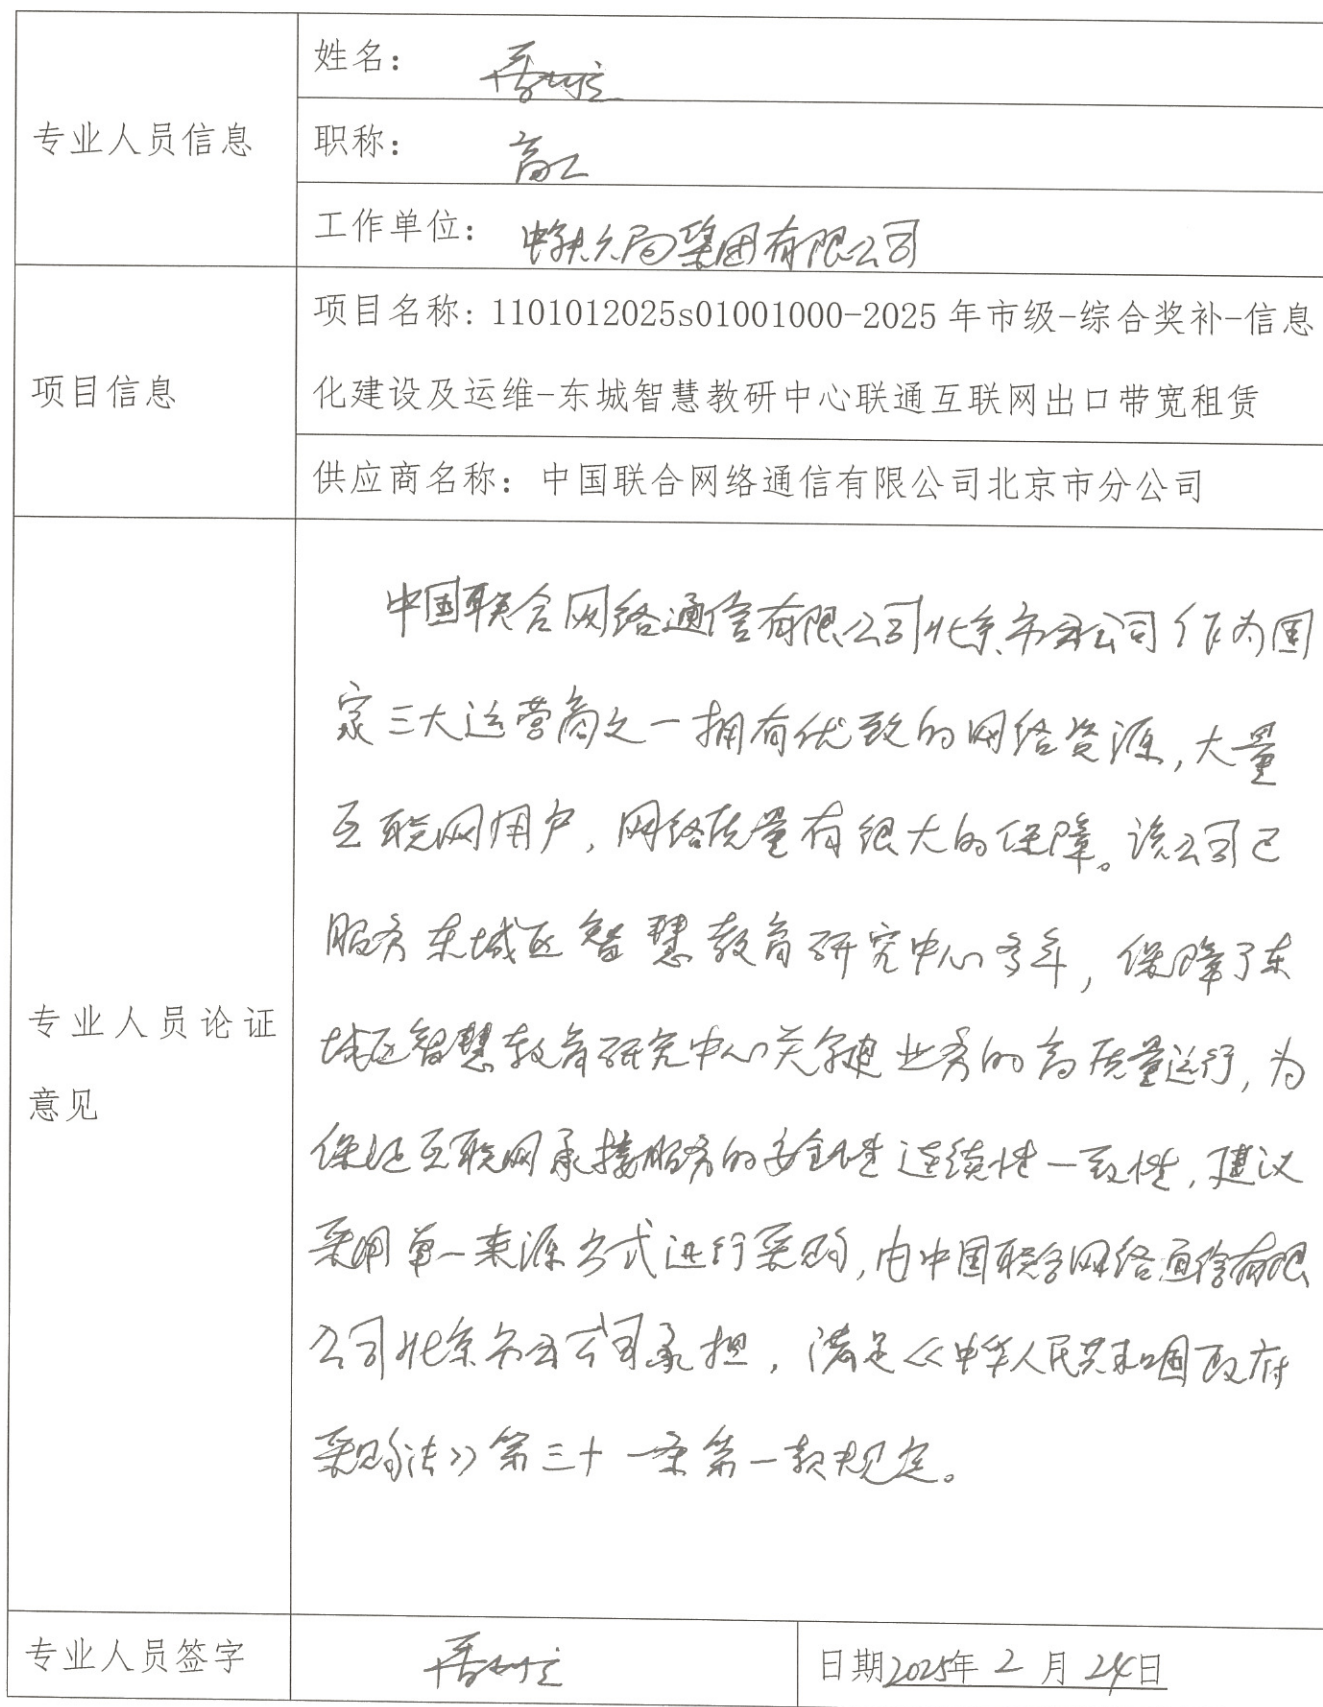 专业人员信息
姓名：
职称： 高工
工作单位： 中铁六局集团有限公司
项目信息
项目名称：1101012025s01001000-2025年市级-综合奖补-信息
化建设及运维-东城智慧教研中心联通互联网出口带宽租赁
供应商名称：中国联合网络通信有限公司北京市分公司
专业人员论证
意见
中国联合网络通信有限公司北京市分公司作为国
家三大运营商之一拥有优致的网络资源，大量
互联网用户，网络质量有很大的保障。该公司已
服务东城区智慧教育研究中心多年，保障了东
城区智慧教育研究中心关键业务的高质量运行，为
保证互联网承接服务的安全性连续性一致性，建议
采用单一来源方式进行采购，由中国联合网络通信有限
公司北京市分公司承担，满足《中华人民共和国政府
采购法》第三十一条第一款规定。
专业人员签字
日期2025年2月24日